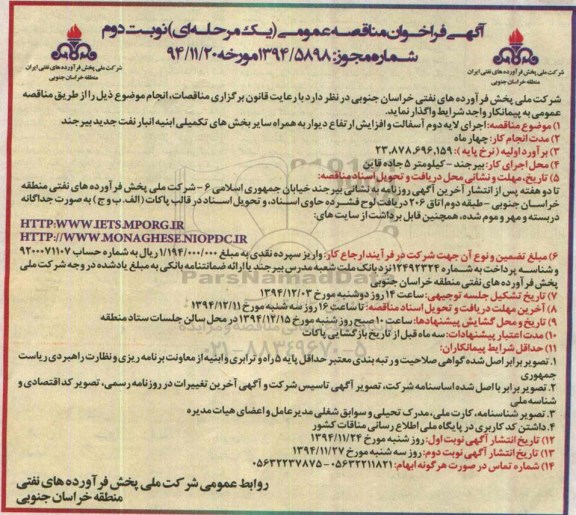 آگهی فراخوان مناقصه عمومی (یک مرحله‌ای) نوبت دوم
شماره مجوز: ۱۳۹۴/۵۸۹۸ مورخه ۹۴/۱۱/۲۰
شرکت ملی پخش فرآورده های نفتی ایران
منطقه خراسان جنوبی
شرکت ملی پخش فرآورده های نفتی ایران
منطقه خراسان جنوبی
شرکت ملی پخش فرآورده های نفتی خراسان جنوبی در نظر دارد با رعایت قانون برگزاری مناقصات، انجام موضوع ذیل را از طریق مناقصه
عمومی به پیمانکار واجد شرایط واگذار نماید.
۱) موضوع مناقصه: اجرای لایه دوم آسفالت و افزایش ارتفاع دیوار به همراه سایر بخش های تکمیلی ابنیه انبار نفت جدید بیرجند
۲) مدت انجام کار: چهار ماه
۳) برآورد اولیه (نرخ پایه): ۲۳،۸۷۸،۶۹۶،۱۵۹
۴) محل اجرای کار: بیرجند - کیلومتر ۵ جاده قاین
۵) تاریخ، مهلت و نشانی محل دریافت و تحویل اسناد مناقصه:
تا دو هفته پس از انتشار آخرین آگهی روزنامه به نشانی بیرجند خیابان جمهوری اسلامی ۶ - شرکت ملی پخش فرآورده های نفتی منطقه
خراسان جنوبی - طبقه دوم اتاق ۲۰۶ دریافت لوح فشرده حاوی اسناد، و تحویل اسناد در قالب پاکات (الف، ب و ج) به صورت جداگانه
دربسته و مهر و موم شده، همچنین قابل برداشت از سایت های:
HTTP:WWW.IETS.MPORG.IR
HTTP://WWW.MONAGHESE.NIOPDC.IR
۶) مبلغ تضمین و نوع آن جهت شرکت در فرآیند ارجاع کار: واریز سپرده نقدی به مبلغ ۱/۱۹۴/۰۰۰/۰۰۰ ریال به شماره حساب ۹۲۰۰۰۷۱۱۰۷
و شناسه پرداخت به شماره ۱۲۴۹۲۳۲۴ نزد بانک ملت شعبه مدرس بیرجند یا ارائه ضمانتنامه بانکی به مبلغ یادشده در وجه شرکت ملی
پخش فرآورده های نفتی منطقه خراسان جنوبی
۷) تاریخ تشکیل جلسه توجیهی: ساعت ۱۴ روز دوشنبه مورخ ۱۳۹۴/۱۲/۰۳
۸) آخرین مهلت دریافت و تحویل اسناد مناقصه: تا ساعت ۱۶ روز سه شنبه مورخ ۱۳۹۴/۱۲/۱۱
۹) تاریخ و محل گشایش پیشنهادها: ساعت ۱۰ صبح روز شنبه مورخ ۱۳۹۴/۱۲/۱۵ در محل سالن جلسات ستاد منطقه
۱۰) مدت اعتبار پیشنهادات: سه ماه قبل از تاریخ بازگشایی پاکات
۱۱) حداقل شرایط پیمانکاران:
۱. تصویر برابر اصل شده گواهی صلاحیت و رتبه بندی معتبر حداقل پایه ۵ راه و ترابری و ابنیه از معاونت برنامه ریزی و نظارت راهبردی ریاست
جمهوری
۲. تصویر برابر با اصل شده اساسنامه شرکت، تصویر آگهی تاسیس شرکت و آگهی آخرین تغییرات در روزنامه رسمی، تصویر کد اقتصادی و
شناسه ملی
۳. تصویر شناسنامه، کارت ملی، مدرک تحیلی و سوابق شغلی مدیر عامل و اعضای هیات مدیره
۴. داشتن کد کاربری در پایگاه ملی اطلاع رسانی مناقات کشور
۱۲) تاریخ انتشار آگهی نوبت اول: روز شنبه مورخ ۱۳۹۴/۱۱/۲۴
۱۳) تاریخ انتشار آگهی نوبت دوم: روز سه شنبه مورخ ۱۳۹۴/۱۱/۲۷
۱۴) شماره تماس در صورت هر گونه ابهام: ۰۵۶۳۲۲۱۱۸۲۱-۰۵۶۳۲۲۳۷۸۷۵
روابط عمومی شرکت ملی پخش فرآورده های نفتی
منطقه خراسان جنوبی
ParsNamadData
۰۲۱-۸۸۳۴۹۶۷۰-۵